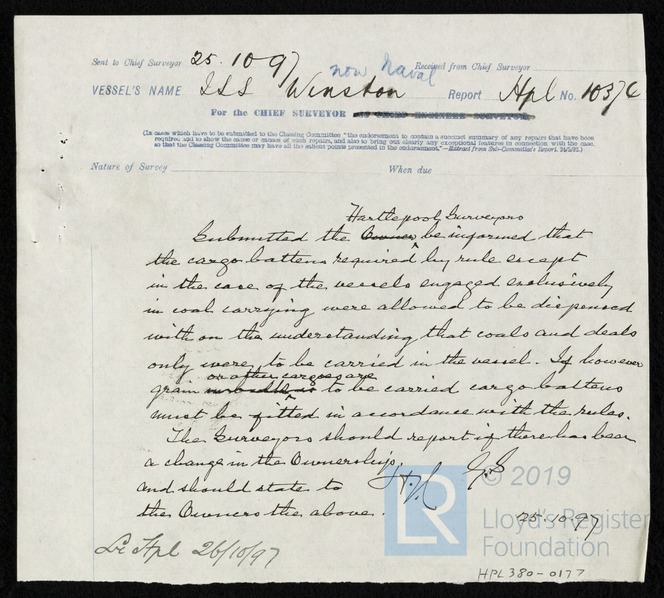 Sent to Chief Surveyor 25.10.97 Received from Chief Surveyor
now Naval
VESSEL'S NAME ISS Winston Report Hpl No. 10376
For the CHIEF SURVEYOR
(In cases which have to be submitted to the Classing Committee "the endorsement to contain a succinct summary of any repairs that have been
required and to show the cause or causes of such repairs, and also to bring out clearly any exceptional features in connection with the case
so that the Classing Committee may have all the salient points presented in the endorsement."—Extract from Sub-Committee's Report.
Nature of Survey When due
Hartlepool Surveyors
Submitted the Owner be informed that
the cargo battens required by rule except
in the case of the vessels engaged exclusively
in coal carrying were allowed to be dispensed
with on the understanding that coals and deals
only were to be carried in the vessel. If however
or other cargoes are
grain to be carried cargo battens
must be fitted in accordance with the rules.
The Surveyors should report if there has been
a change in the Ownership,
and should state to
the Owners the above.
25.10.97
Lr Hpl 26/10/97
LR
© 2019
Lloyd's Register
Foundation
HPL380-0177